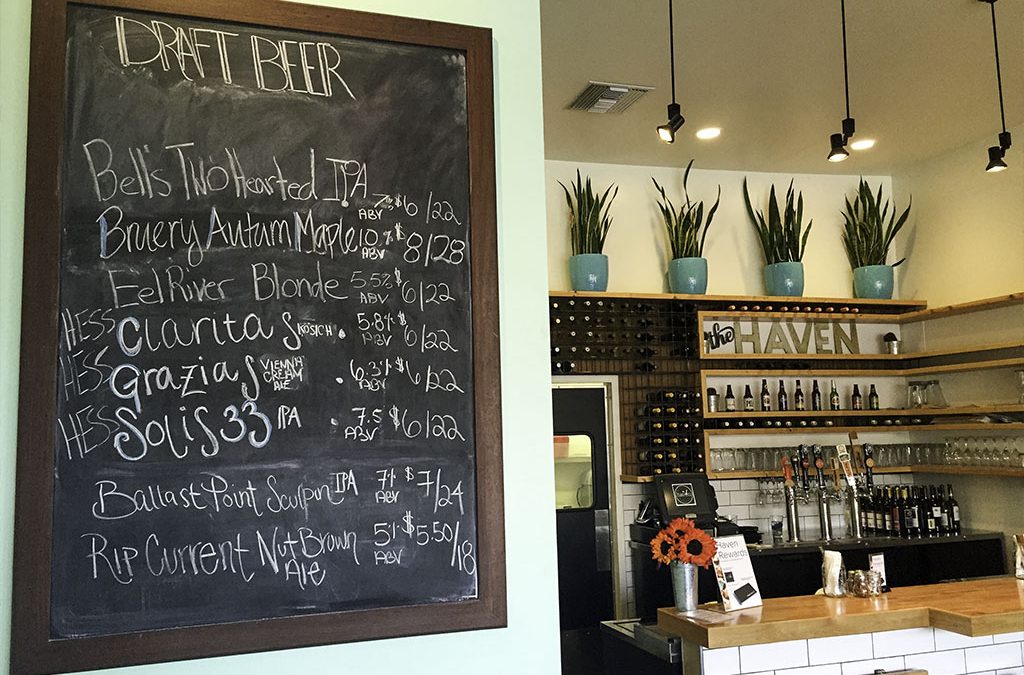 DRAFT BEER
Bell's Two Hearted IPA 7% ABV $6/22
Bruery Autum Maple 10% ABV $8/28
Eel River Blonde 5.5% ABV $6/22
HESS Clarita KÖSICH. 5.8% ABV $6/22
HESS Grazias VIENNA CREAM ALE . 6.3% ABV $6/22
HESS Solis 33 IPA . 7.5 ABV $6/22
Ballast Point Sculpin IPA 7% ABV $7/24
Rip Current Nut Brown Ale 5% ABV $5.50/18
the HAVEN
Haven
Rewards